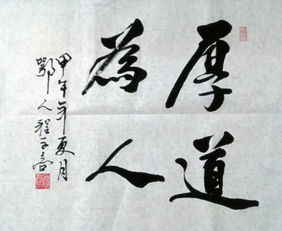 厚道
為人
甲午年夏月
鄂人程子言